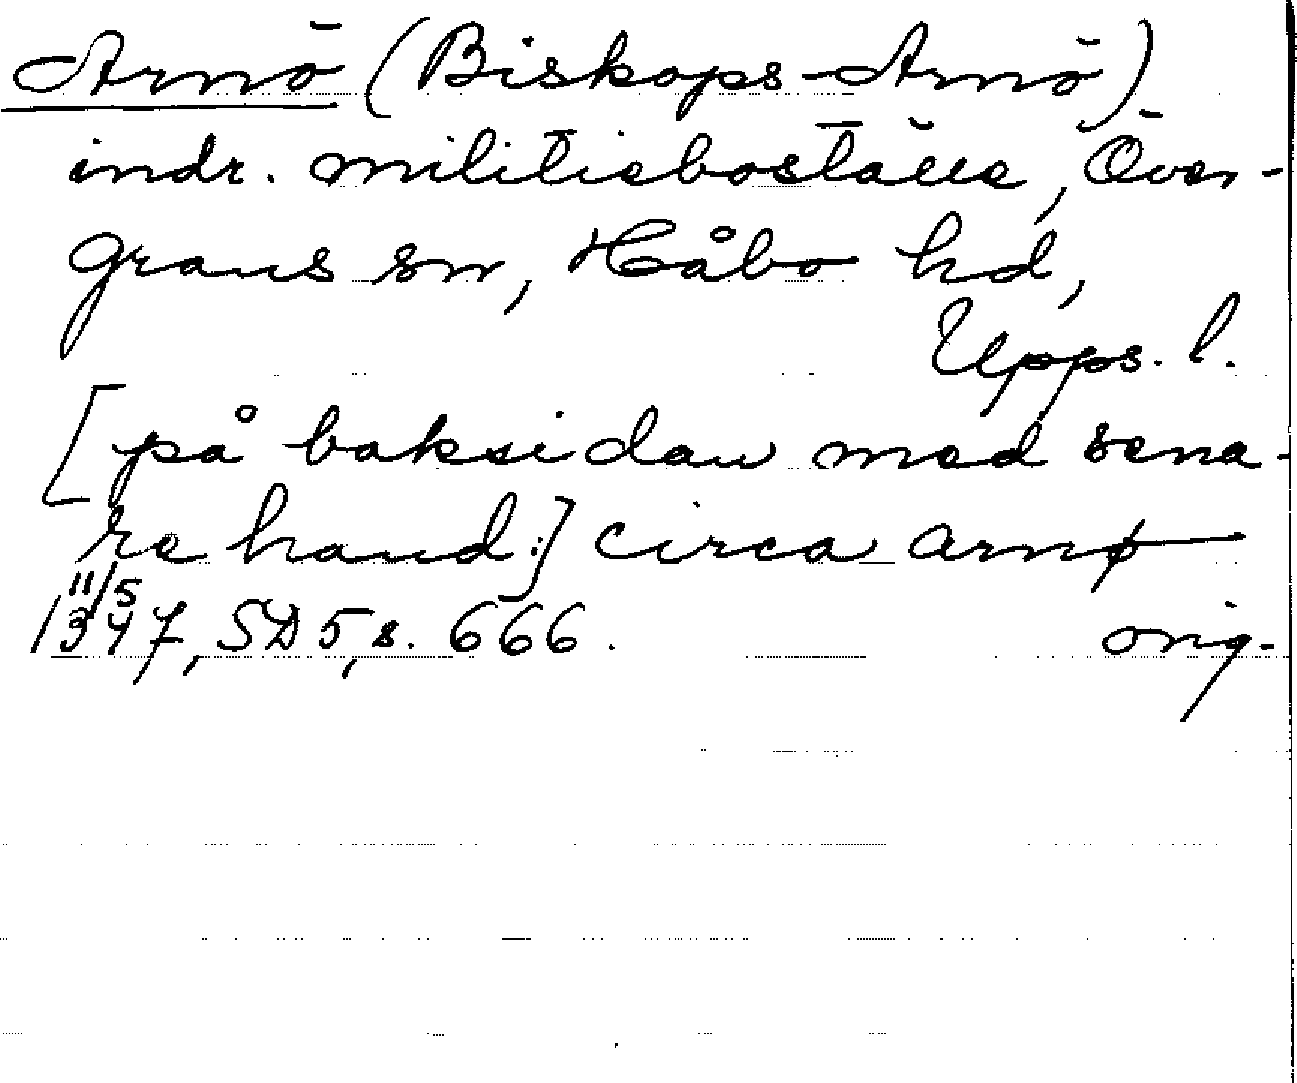 Arnö (Biskops-Arnö)
indr. militieboställe, Över-
grans sn, Håbo hd,
Upps. l.
[på baksidan med sena-
re hand:] circa arnø
11/5
1347, SD 5, s. 666. orig.